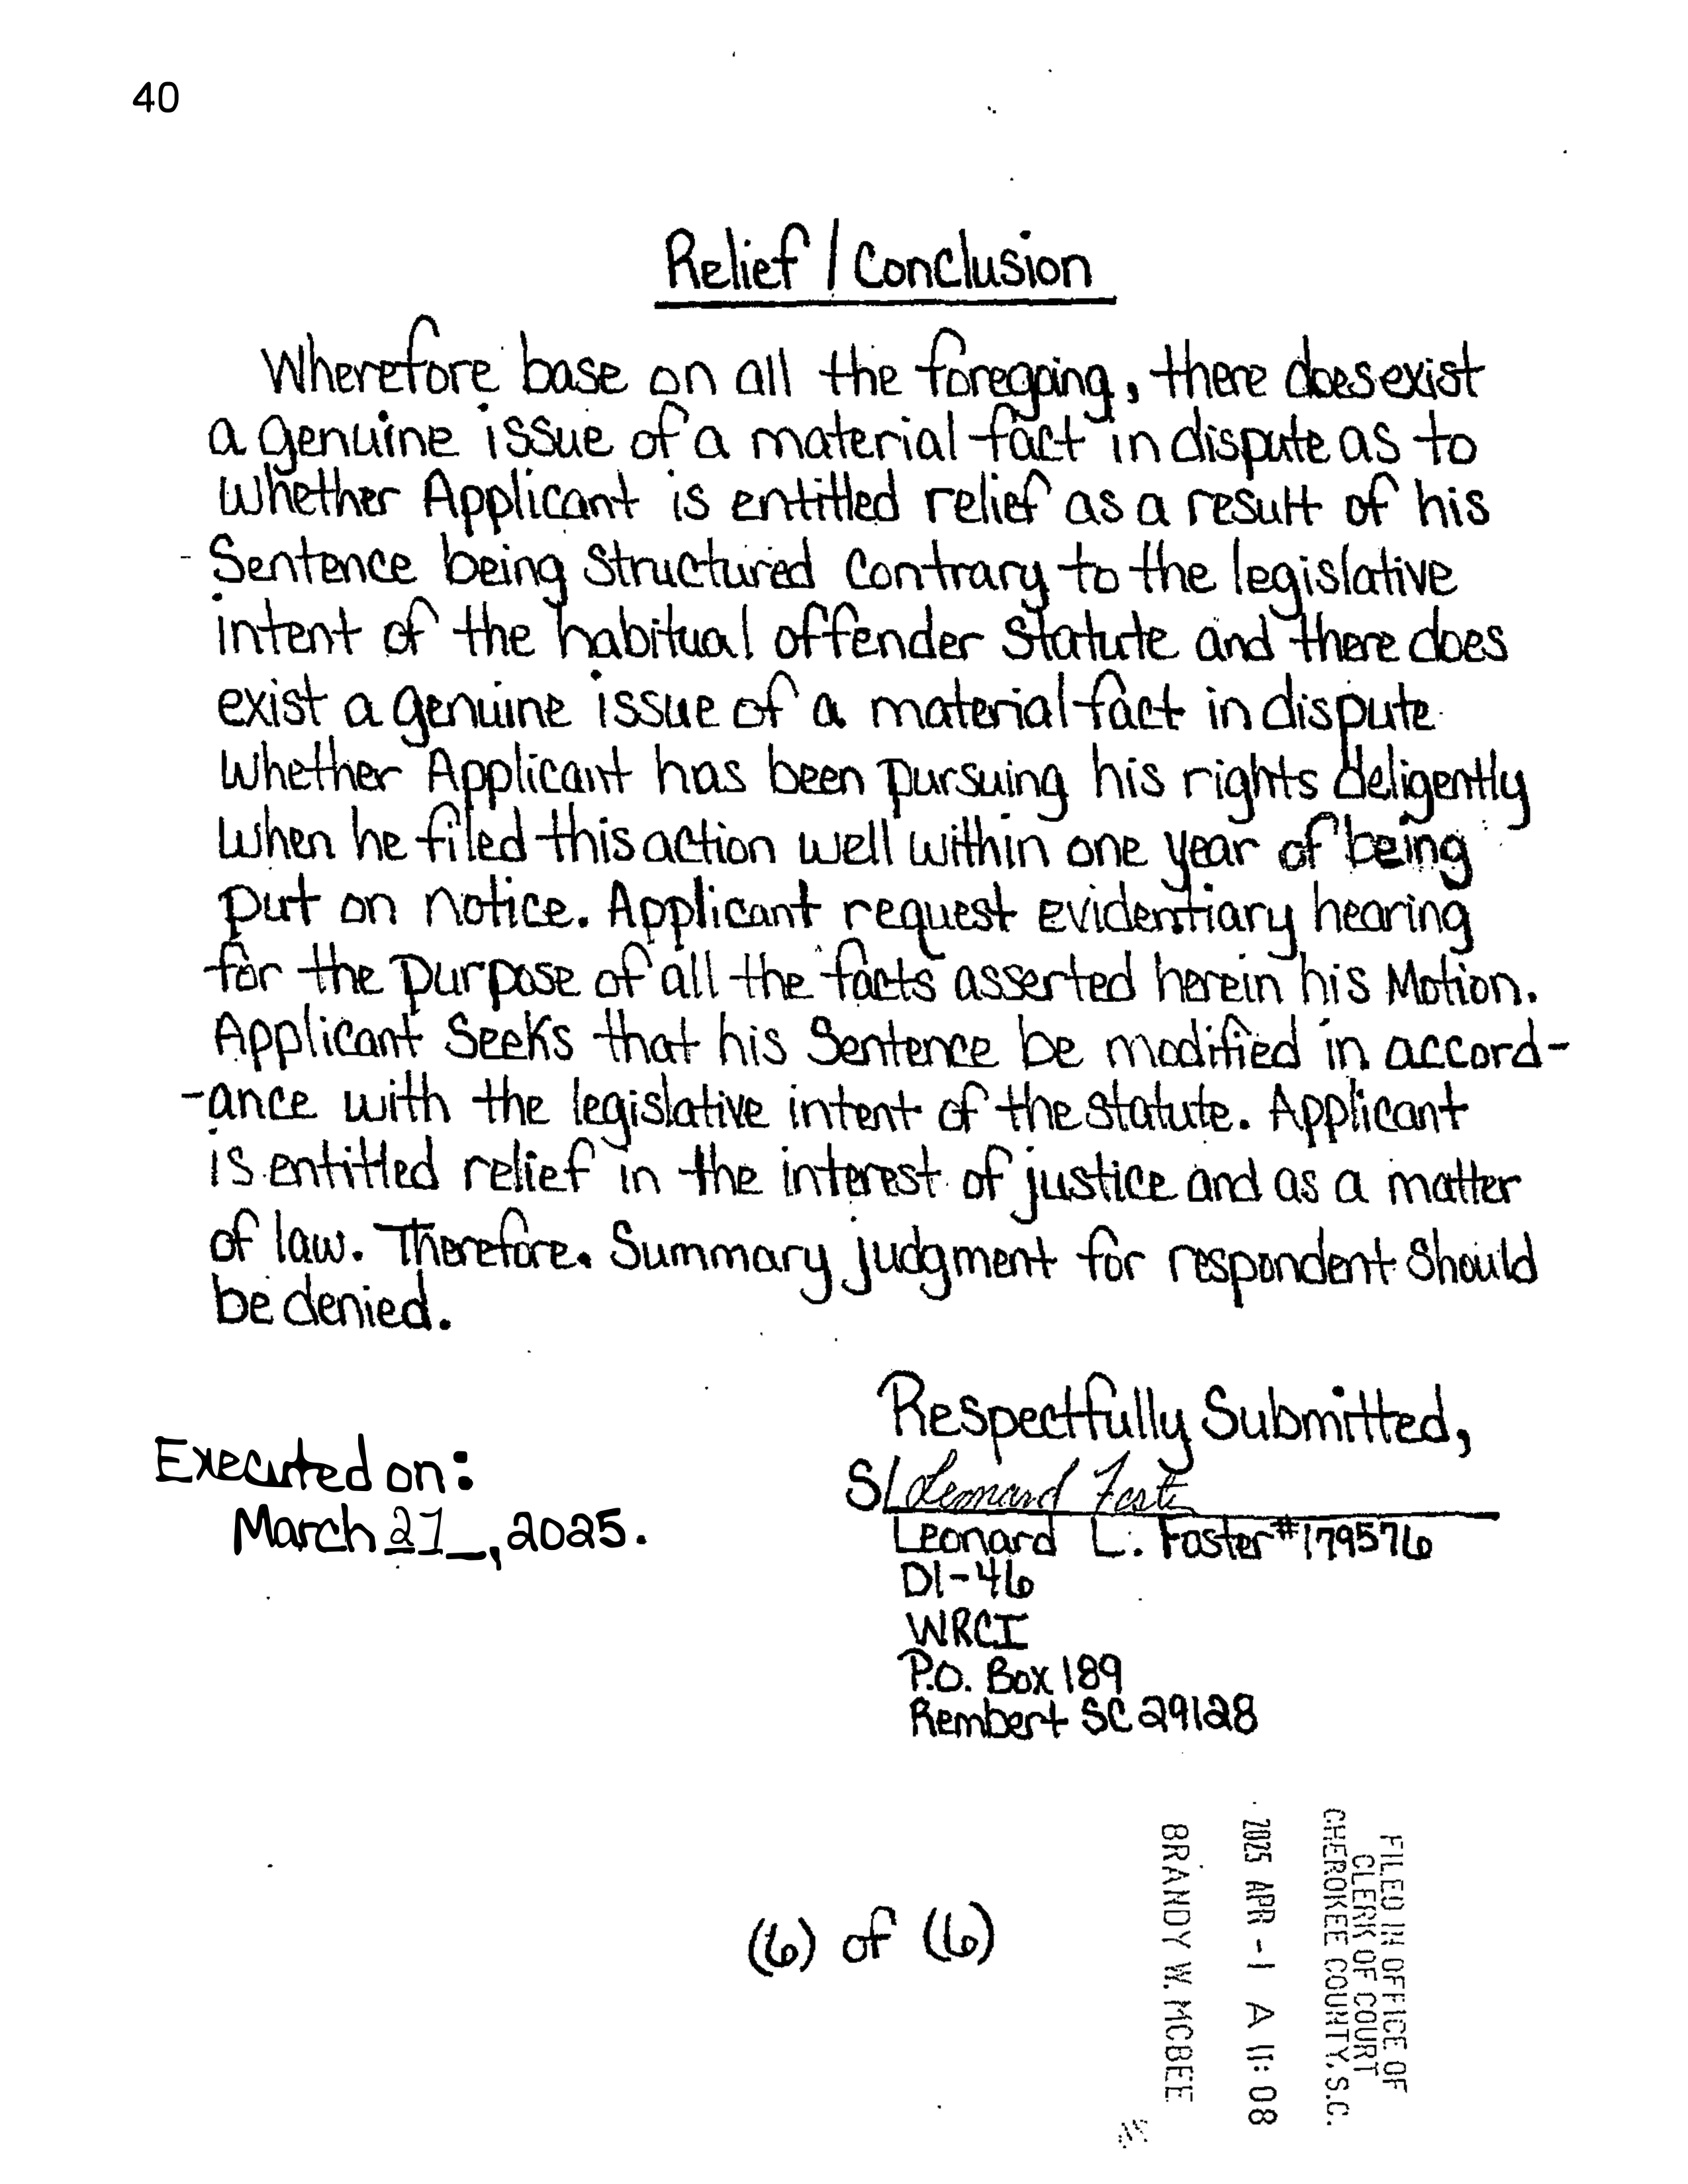 40
Relief / Conclusion
Wherefore base on all the foregoing, there does exist
a genuine issue of a material fact in dispute as to
whether Applicant is entitled relief as a result of his
Sentence being Structured Contrary to the legislative
intent of the habitual offender Statute and there does
exist a genuine issue of a material fact in dispute
whether Applicant has been pursuing his rights deligently
when he filed this action well within one year of being
put on notice. Applicant request evidentiary hearing
for the purpose of all the facts asserted herein his Motion.
Applicant Seeks that his Sentence be modified in accord-
-ance with the legislative intent of the statute. Applicant
is entitled relief in the interest of justice and as a matter
of law. Therefore. Summary judgment for respondent Should
be denied.
Respectfully Submitted,
Executed on:
S/ Leonard Foster
March 27, 2025.
Leonard L. Foster #179576
D1-46
WRCI
P.O. Box 189
Rembert SC 29128
(6) of (6)
FILED IN OFFICE OF
CLERK OF COURT
CHEROKEE COUNTY, S.C.
2025 APR -1 A 11: 08
BRANDY W. MCBEE